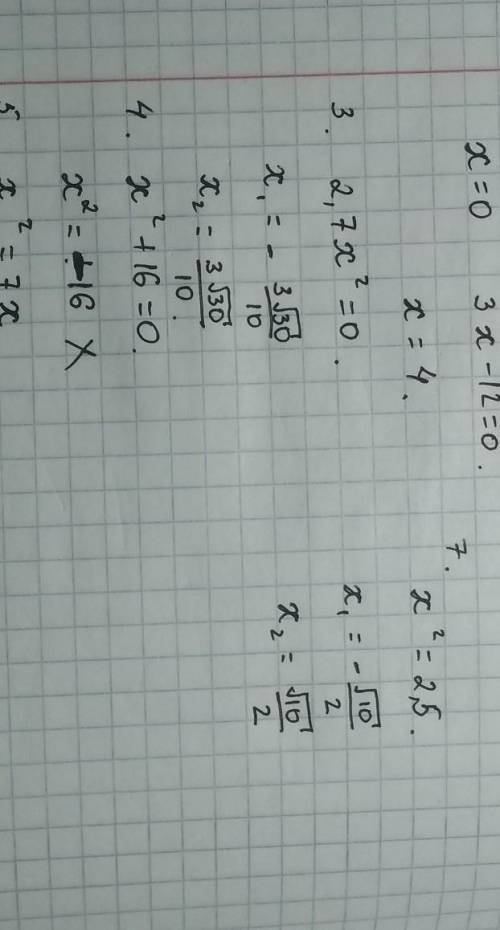 x = 0 3x - 12 = 0.
x = 4.
3. 2,7x² = 0.
x₁ = - 3√30/10
x₂ = 3√30/10.
4. x² + 16 = 0.
x² = -16 X
5 x² = 7x
7. x² = 2,5.
x₁ = - √10/2
x₂ = √10/2